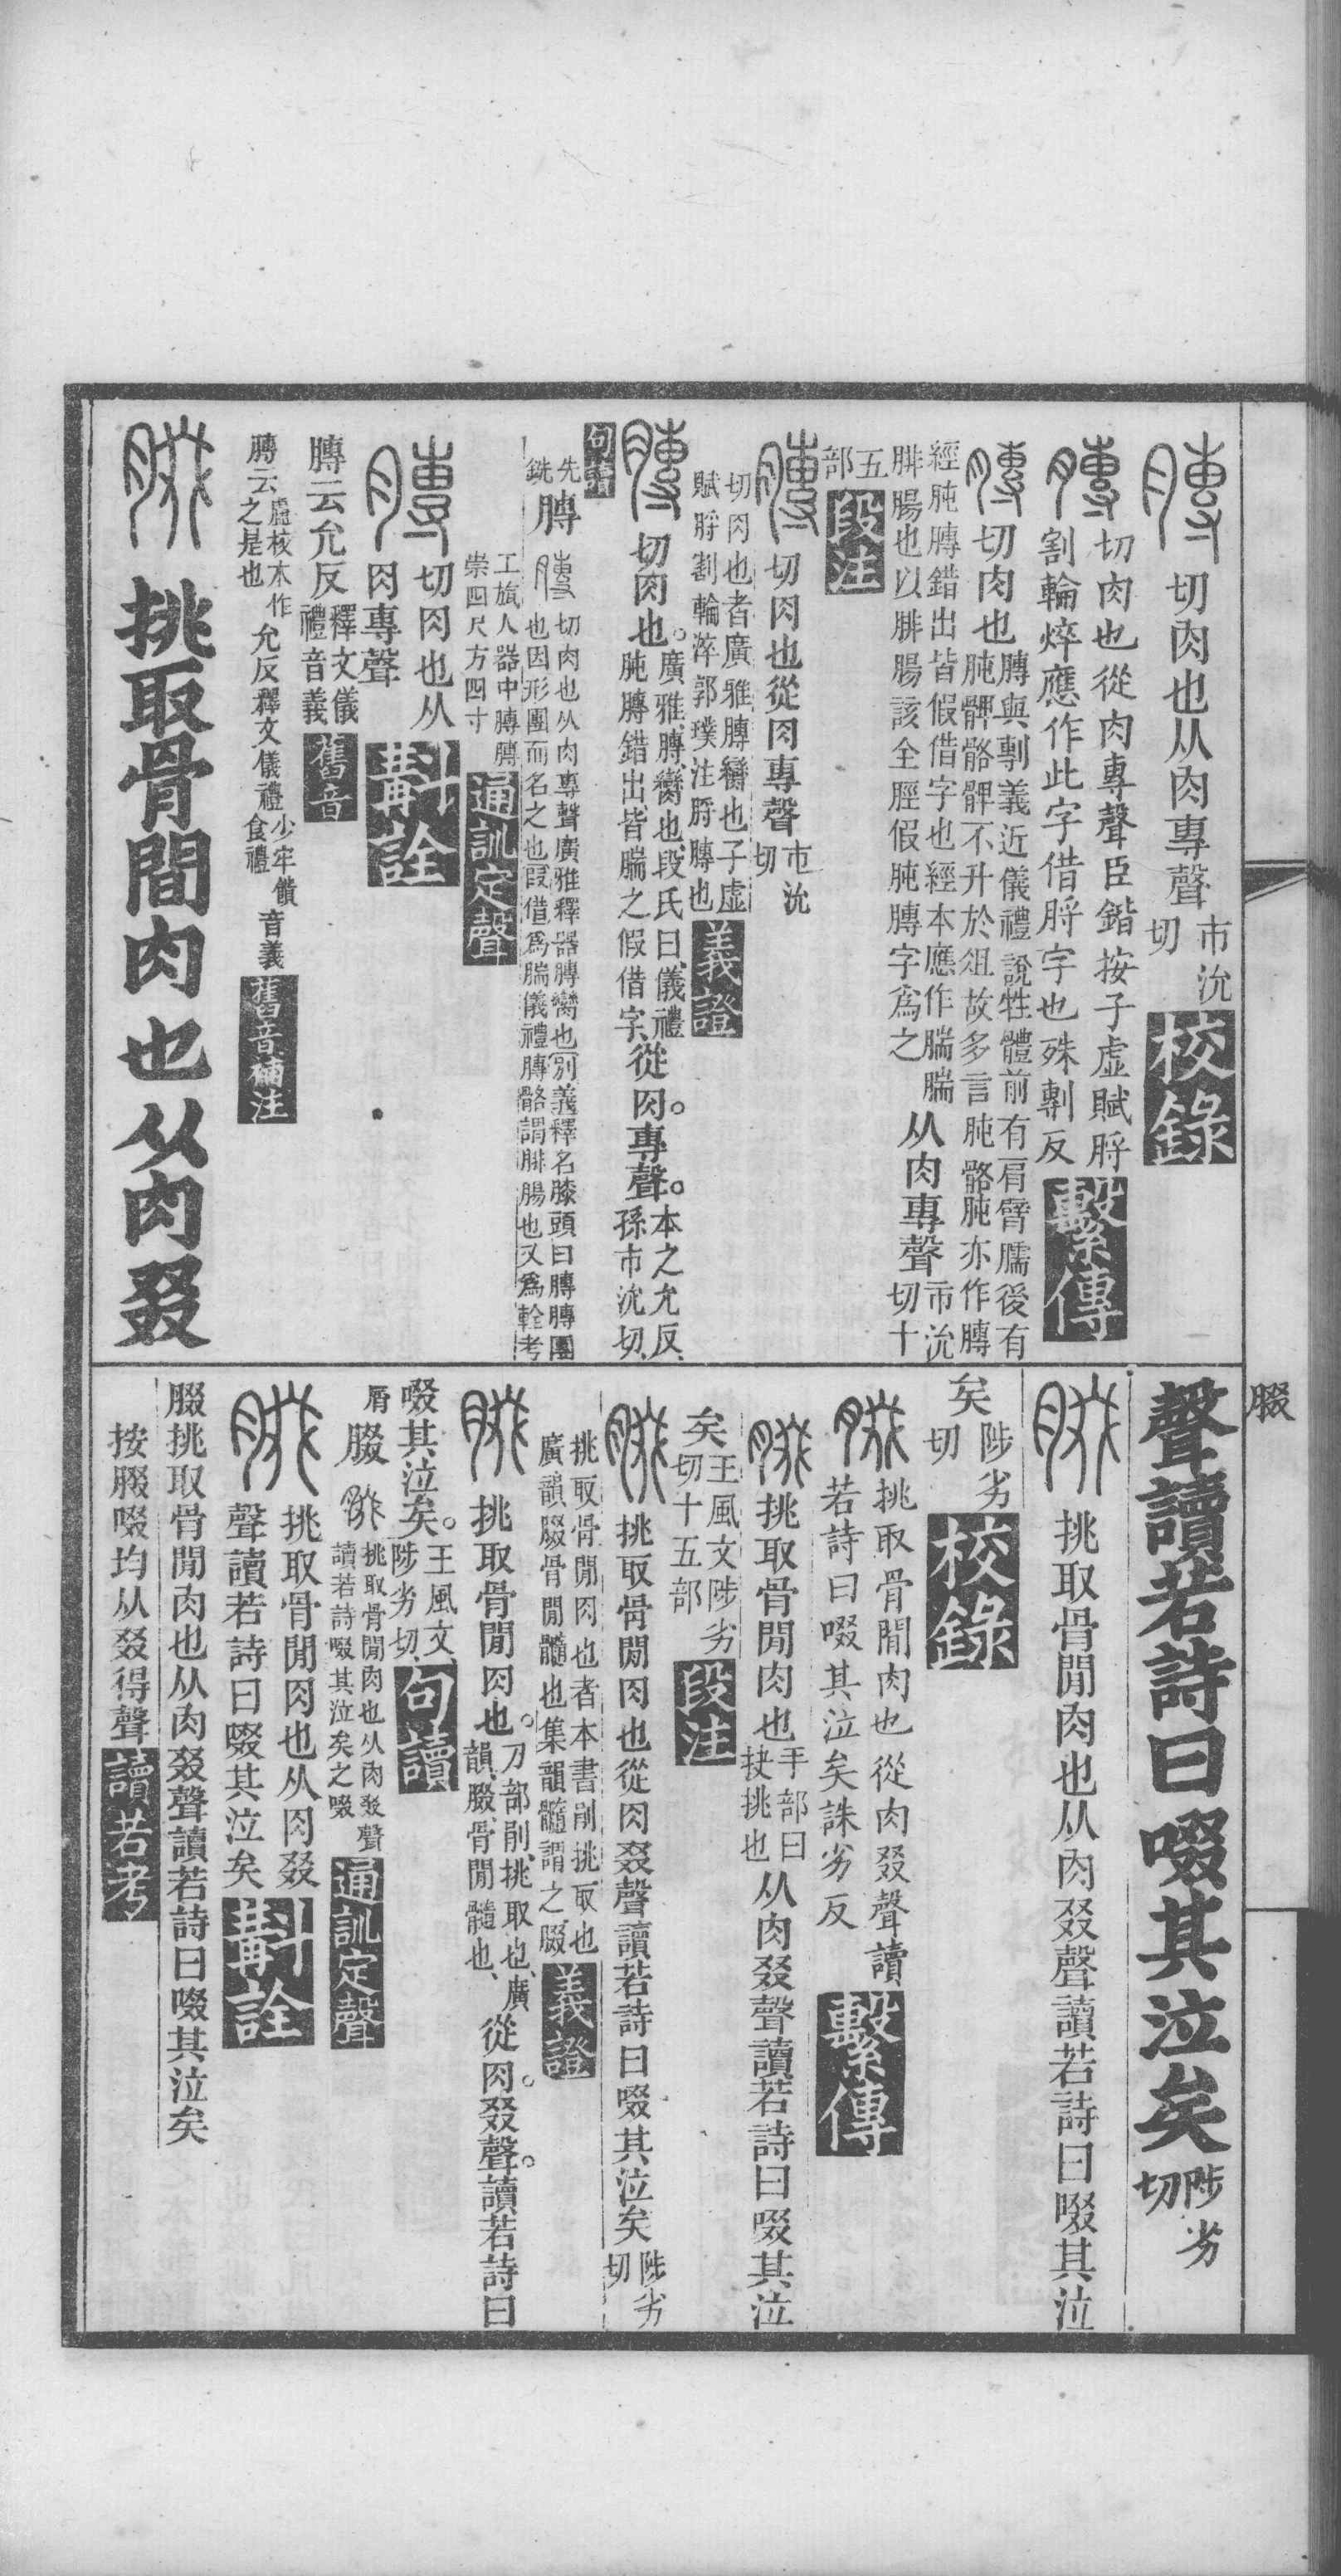 膞切肉也从肉專聲市沇切校錄
膞切肉也從肉專聲臣鍇按子虛賦脟割輪焠應作此字借脟字也殊剸反繫傳
膞切肉也膞與剸義近儀禮說牲體前有肩臂臑後有肫髀骼髀不升於俎故多言肫骼肫亦作膞
經肫膞錯出皆假借字也經本應作腨腨腓腸也以腓腸該全脛假肫膞字爲之从肉專聲市沇切十
五部段注
膞切肉也從肉專聲市沇切
切肉也者廣雅膞臠也子虛賦脟割輪淬郭璞注脟膞也義證
膞切肉也。廣雅、膞、臠也、段氏曰、儀禮肫膞錯出、皆腨之假借字、從肉。專聲。本之允反、孫市沇切、
句讀
先銑膞膞切肉也从肉專聲廣雅釋器膞臠也別義釋名膝頭曰膞膞團也因形團而名之也叚借爲腨儀禮膞骼謂腓腸也又爲輇考
工旊人器中膞膞崇四尺方四寸通訓定聲
膞切肉也从肉專聲斠詮
膞云允反釋文儀禮音義舊音
膞云虛核本作之是也允反釋文儀禮少牢饋食禮音義舊音補注
腏挑取骨間肉也从肉叕
腏
聲讀若詩曰啜其泣矣陟劣切
腏挑取骨閒肉也从肉叕聲讀若詩曰啜其泣
矣陟劣切校錄
腏挑取骨閒肉也從肉叕聲讀若詩曰啜其泣矣誅劣反繫傳
腏挑取骨閒肉也手部曰抉挑也从肉叕聲讀若詩曰啜其泣
矣王風文陟劣切十五部段注
腏挑取骨閒肉也從肉叕聲讀若詩曰啜其泣矣陟劣切
挑取骨閒肉也者本書剈挑取也廣韻腏骨閒髓也集韻髓謂之腏義證
腏挑取骨閒肉也。刀部剈、挑取也、廣韻、腏、骨閒髓也、從肉。叕聲。讀若詩曰
啜其泣矣。王風文、陟劣切、句讀
屑腏腏挑取骨閒肉也从肉叕聲讀若詩啜其泣矣之啜通訓定聲
腏挑取骨閒肉也从肉叕聲讀若詩曰啜其泣矣斠詮
腏挑取骨閒肉也从肉叕聲讀若詩曰啜其泣矣
按腏啜均从叕得聲讀若考